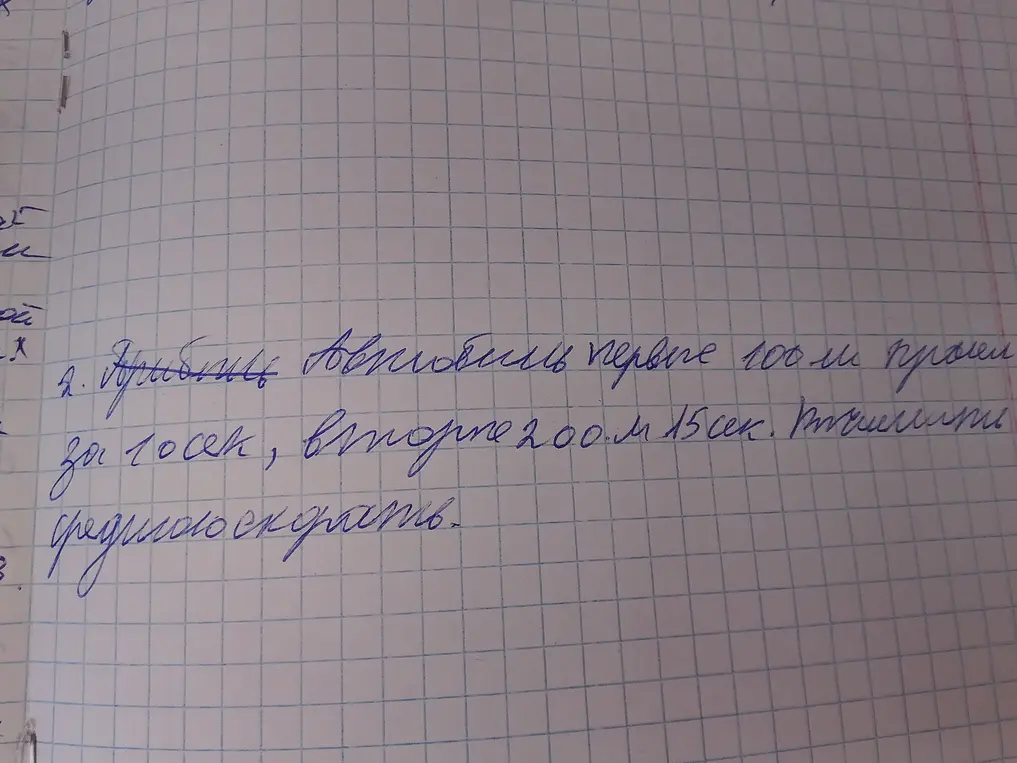 ой
х
2. Прибыль Автобиль первые 100 м прошел
за 10 сек, вторые 200.м 15 сек. Вычислить
среднюю скорость.